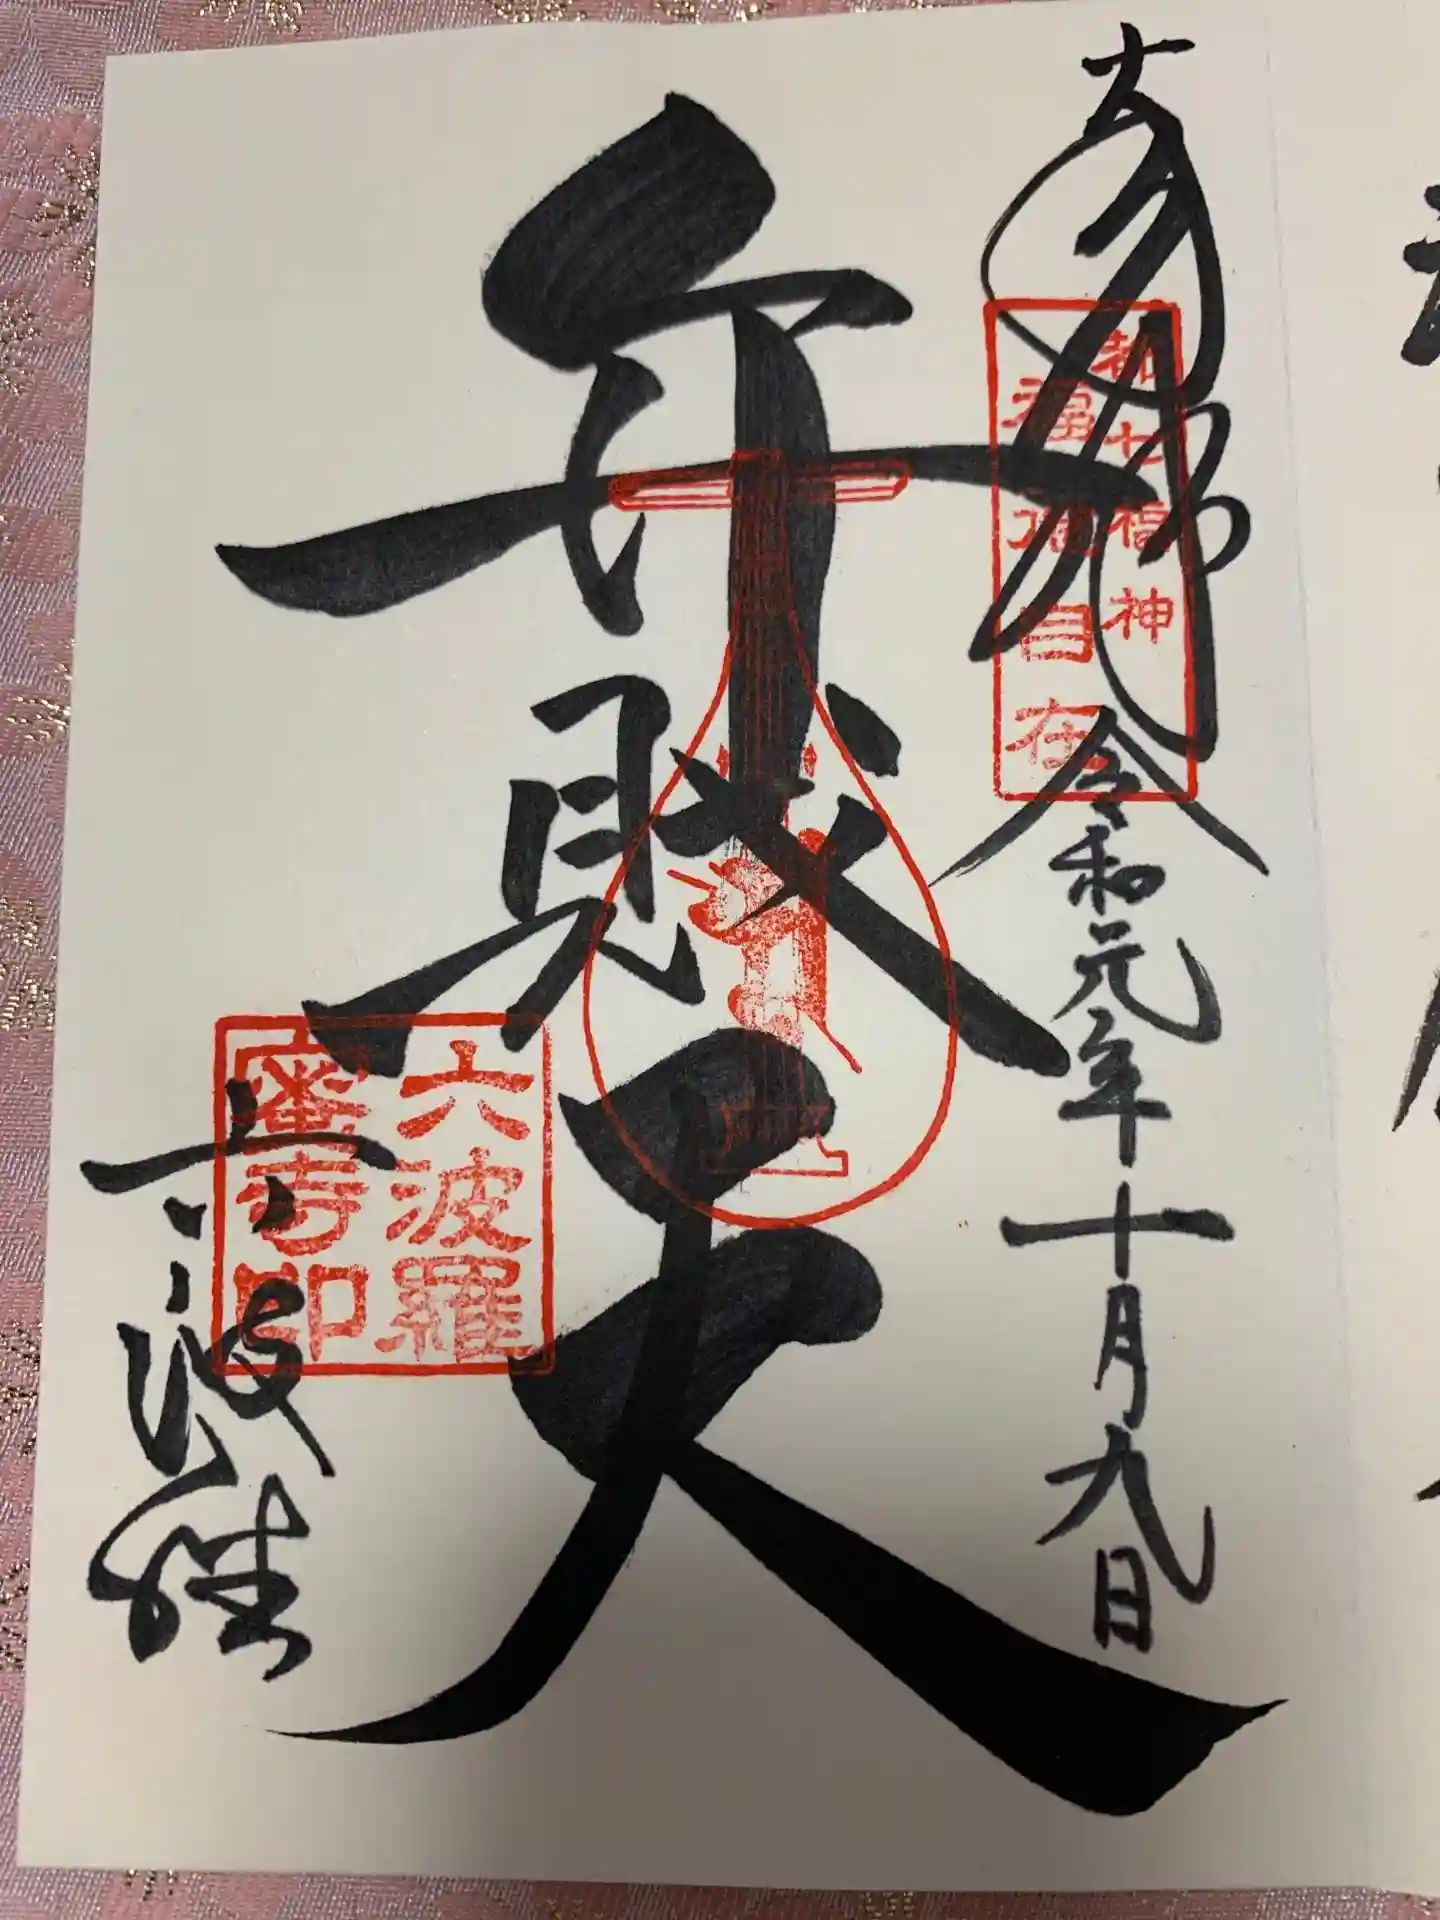 奉拝
令和元年十月九日
都七福神
福徳自在
弁財天
六波羅
蜜寺印
六波羅